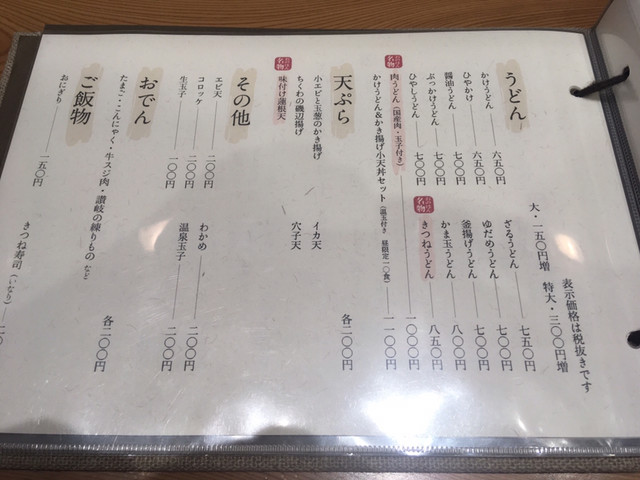 うどん
かけうどん 六五〇円
ひやかけ 六五〇円
醤油うどん 七〇〇円
ぶっかけうどん 七〇〇円
ひやしうどん 七〇〇円
名物
肉うどん(国産肉・玉子付き) 一〇〇〇円
かけうどん&かき揚げ小天丼セット(温玉付き 昼限定一〇食) 一一〇〇円
表示価格は税抜きです
大・一五〇円増 特大・三〇〇円増
ざるうどん 七五〇円
ゆだめうどん 七〇〇円
釜揚げうどん 七〇〇円
かま玉うどん 八〇〇円
名物
きつねうどん 八五〇円
天ぷら 各二〇〇円
小エビと玉葱のかき揚げ
イカ天
ちくわの磯辺揚げ
穴子天
名物
味付け蓮根天
その他
エビ天 二〇〇円
わかめ 二〇〇円
コロッケ 二〇〇円
温泉玉子 二〇〇円
生玉子 一〇〇円
おでん
たまご・こんにゃく・牛スジ肉・讃岐の練りもの など 各二〇〇円
ご飯物
おにぎり 一五〇円
きつね寿司(いなり)